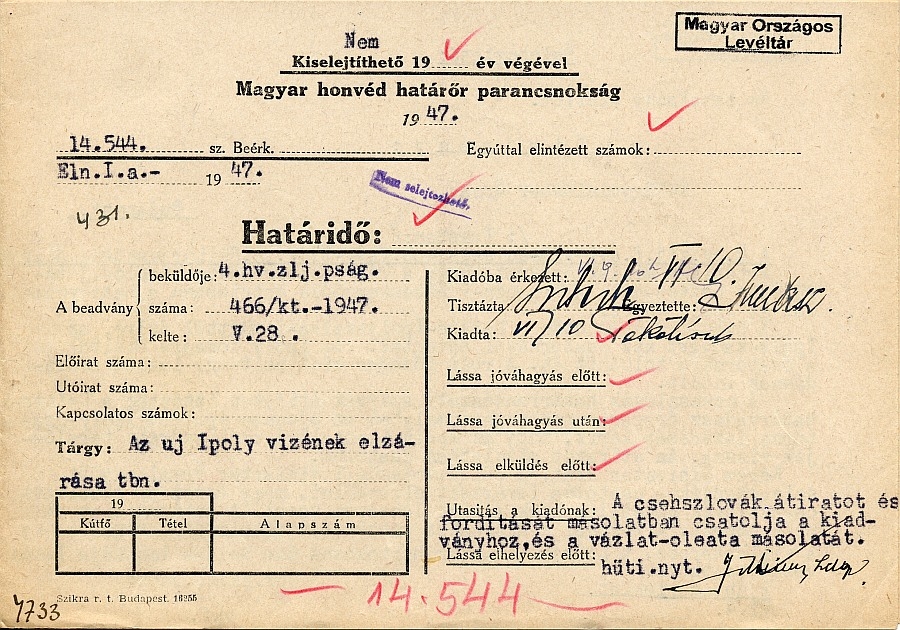 Magyar Országos
Levéltár
Nem
Kiselejtíthető 19 év végével
Magyar honvéd határőr parancsnokság
1947.
14.544. sz. Beérk.
Együttal elintézett számok:
Eln.I.a.- 1947.
Nem selejtezhető.
431.
Határidő:
A beadvány
beküldője: 4.hv.zlj.pság.
száma: 466/kt.-1947.
kelte: V.28 .
Előirat száma:
Utóirat száma:
Kapcsolatos számok:
Tárgy: Az uj Ipoly vizének elzá-
rása tbn.
19
Kútfő Tétel Alapszám
Kiadóba érkezett:
Tisztázta Egyeztette:
Kiadta: VI/10
Lássa jóváhagyás előtt:
Lássa jóváhagyás után:
Lássa elküldés előtt:
Utasítás a kiadónak: A csehszlovák átiratot és
forditását másolatban csatolja a kiad-
ványhoz,és a vázlat-oleata másolatát.
Lássa elhelyezés előtt:
hüti.nyt.
Szikra r. t. Budapest. 16255
14.544
4733